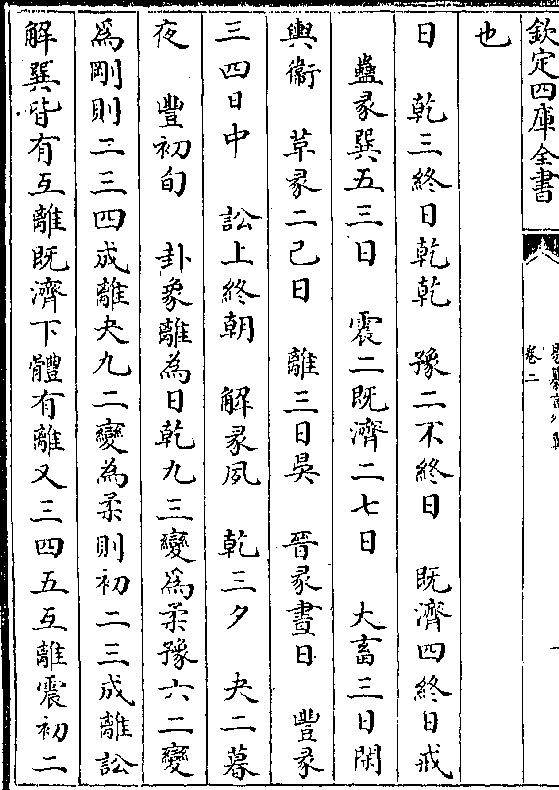 欽定四庫全書
卷二
也
日　乾三終日乾乾　豫二不終日　既濟四終日戒
蠱彖巽五三日　震二既濟二七日　大畜三日閑
輿衞　革彖二己日　離三日昃　晉彖晝日　豐彖
三四日中　訟上終朝　解彖夙　乾三夕　夬二暮
夜　豐初旬　卦象離為日乾九三變為柔豫六二變
為剛則二三四成離夬九二變為柔則初二三成離訟
解巽皆有互離既濟下體有離又三四五互離震初二